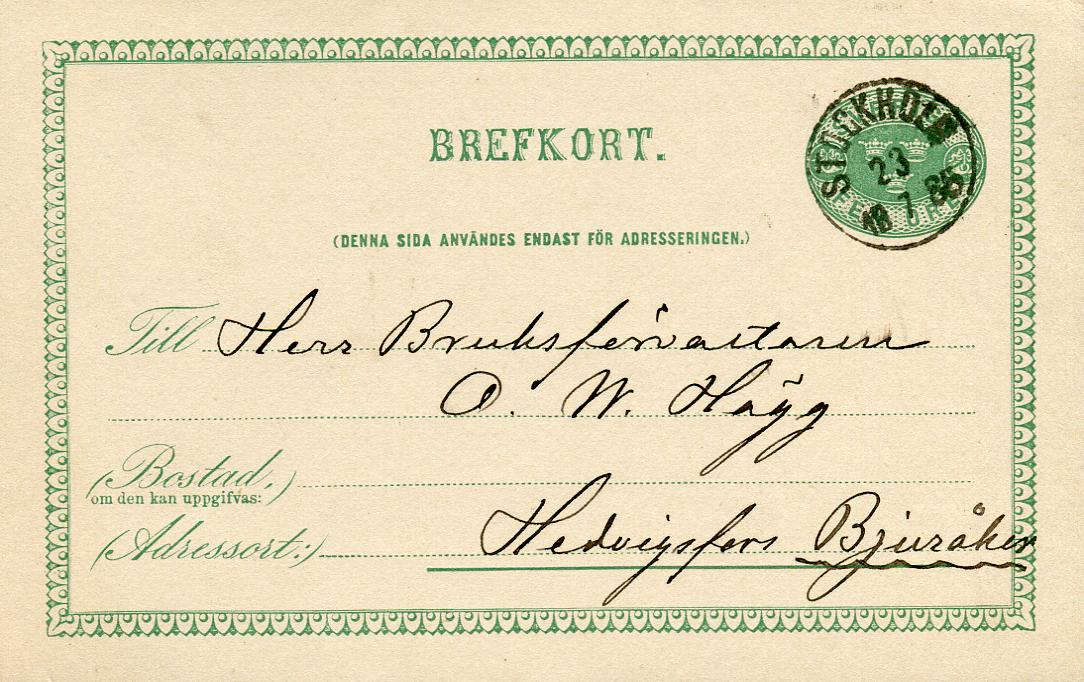 BREFKORT.
STOCKHOLM
23
18 7 86
(DENNA SIDA ANVÄNDES ENDAST FÖR ADRESSERINGEN.)
Till Herr Bruksförvaltaren
O. W. Hägg
(Bostad,)
om den kan uppgifvas:
(Adressort:) Hedvigsfors Bjuråker